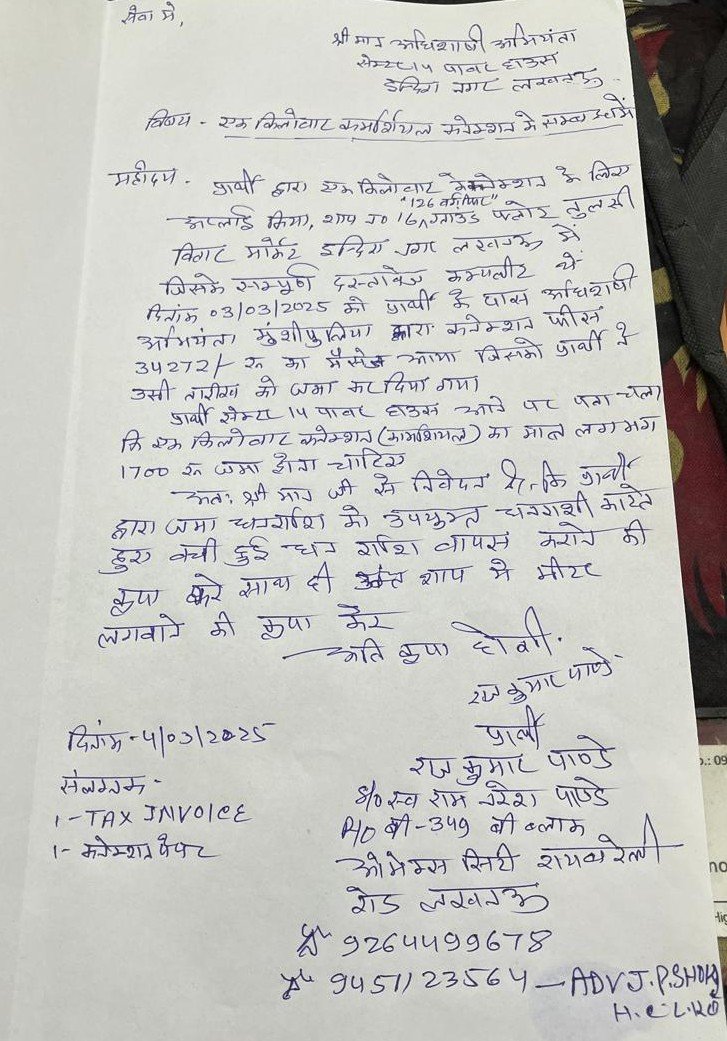 सेवा मे,
श्री मान अधिशाषी अभियंता
सेक्टर 14 पावर हाउस
इन्दिरा नगर लखनऊ.
विषय - एक किलोवाट कमर्शियल कनेक्शन के सम्बन्ध में
महोदय - प्रार्थी द्वारा एक किलोवाट कनेक्शन के लिए
"126 वर्ग फिट"
अप्लाई किया, शाप न० 16, ग्राउंड फ्लोर तुलसी
विहार मार्केट इन्दिरा नगर लखनऊ में
जिसके सम्पूर्ण दस्तावेज कम्पलीट थे
दिनांक 03/03/2025 को प्रार्थी के पास अधिशाषी
अभियंता मुंशीपुलिया द्वारा कनेक्शन फीस
34272/- रू का मैसेज आया जिसको प्रार्थी ने
उसी तारीख को जमा कर दिया गया
प्रार्थी सेक्टर 14 पावर हाउस आने पर पता चला
कि एक किलोवाट कनेक्शन (कामर्शियल) का मात्र लगभग
1700 रू जमा होना चाहिए
अतः श्री मान जी से निवेदन है, कि प्रार्थी
द्वारा जमा धनराशि को उपयुक्त धनराशी काटते
हुए बची हुई धन राशि वापस कराने की
कृपा करे साथ ही उक्त शाप मे मीटर
लगवाने की कृपा करें
अति कृपा होगी.
राज कुमार पाण्डे
प्रार्थी
राज कुमार पाण्डे
S/o स्व राम नरेश पाण्डे
R/o बी-349 बी ब्लाक
ओमेक्स सिटी रायबरेली
रोड लखनऊ
9264499678
9451123564 - ADV J.P.
H.C L.KO
दिनांक - 4/03/2025
संलग्नक -
1 - TAX INVOICE
1 - कनेक्शन पेपर
o.: 09
no
Hig